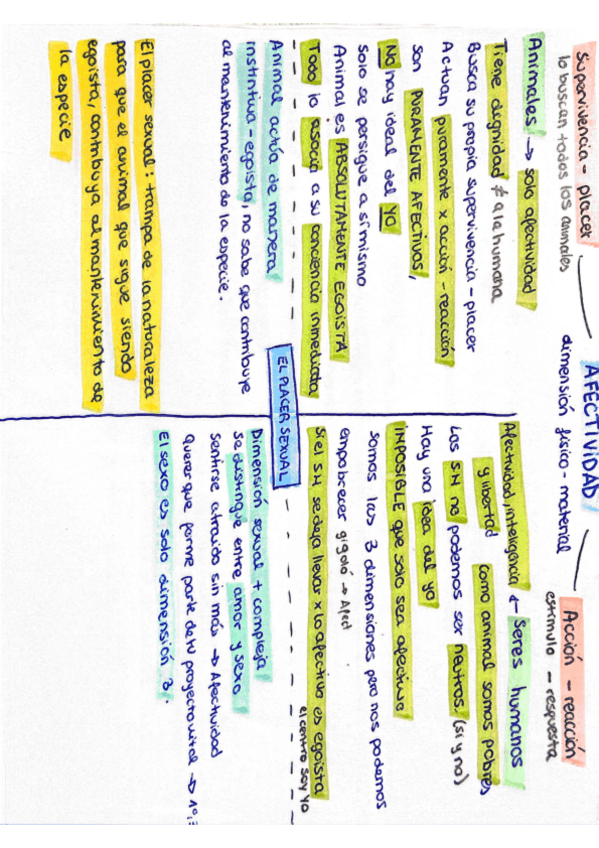 AFECTIVIDAD
dimensión físico-material
Supervivencia - placer
lo buscan todos los animales
Acción - reacción
estímulo - respuesta
Animales → solo afectividad
Tiene dignidad ≠ a la humana
Busca su propia supervivencia - placer
Actúan puramente x acción - reacción
son PURAMENTE AFECTIVOS,
No hay ideal del YO
Solo se persigue a sí mismo
Animal es ABSOLUTAMENTE EGOISTA
Todo lo asocia a su conciencia inmediata
Afectividad, inteligencia ← Seres humanos
y libertad como animal somos pobres
Los SH no podemos ser neutros (sí y no)
Hay una idea del yo
IMPOSIBLE que solo sea afectivo
somos las 3 dimensiones pero nos podemos
empobrecer gigoló → Afect
Si el SH se deja llevar x lo afectivo es egoista
el centro soy yo
EL PLACER SEXUAL
Animal actúa de manera
instintiva - egoista, no sabe que contribuye
al mantenimiento de la especie.
El placer sexual: trampa de la naturaleza
para que el animal que sigue siendo
egoista, contribuya al mantenimiento de
la especie
Dimensión sexual + compleja
Se distingue entre amor y sexo
sentirse atraido sin más → Afectividad
querer que forme parte de tu proyecto vital → 1º,
El sexo es solo dimensión 3.